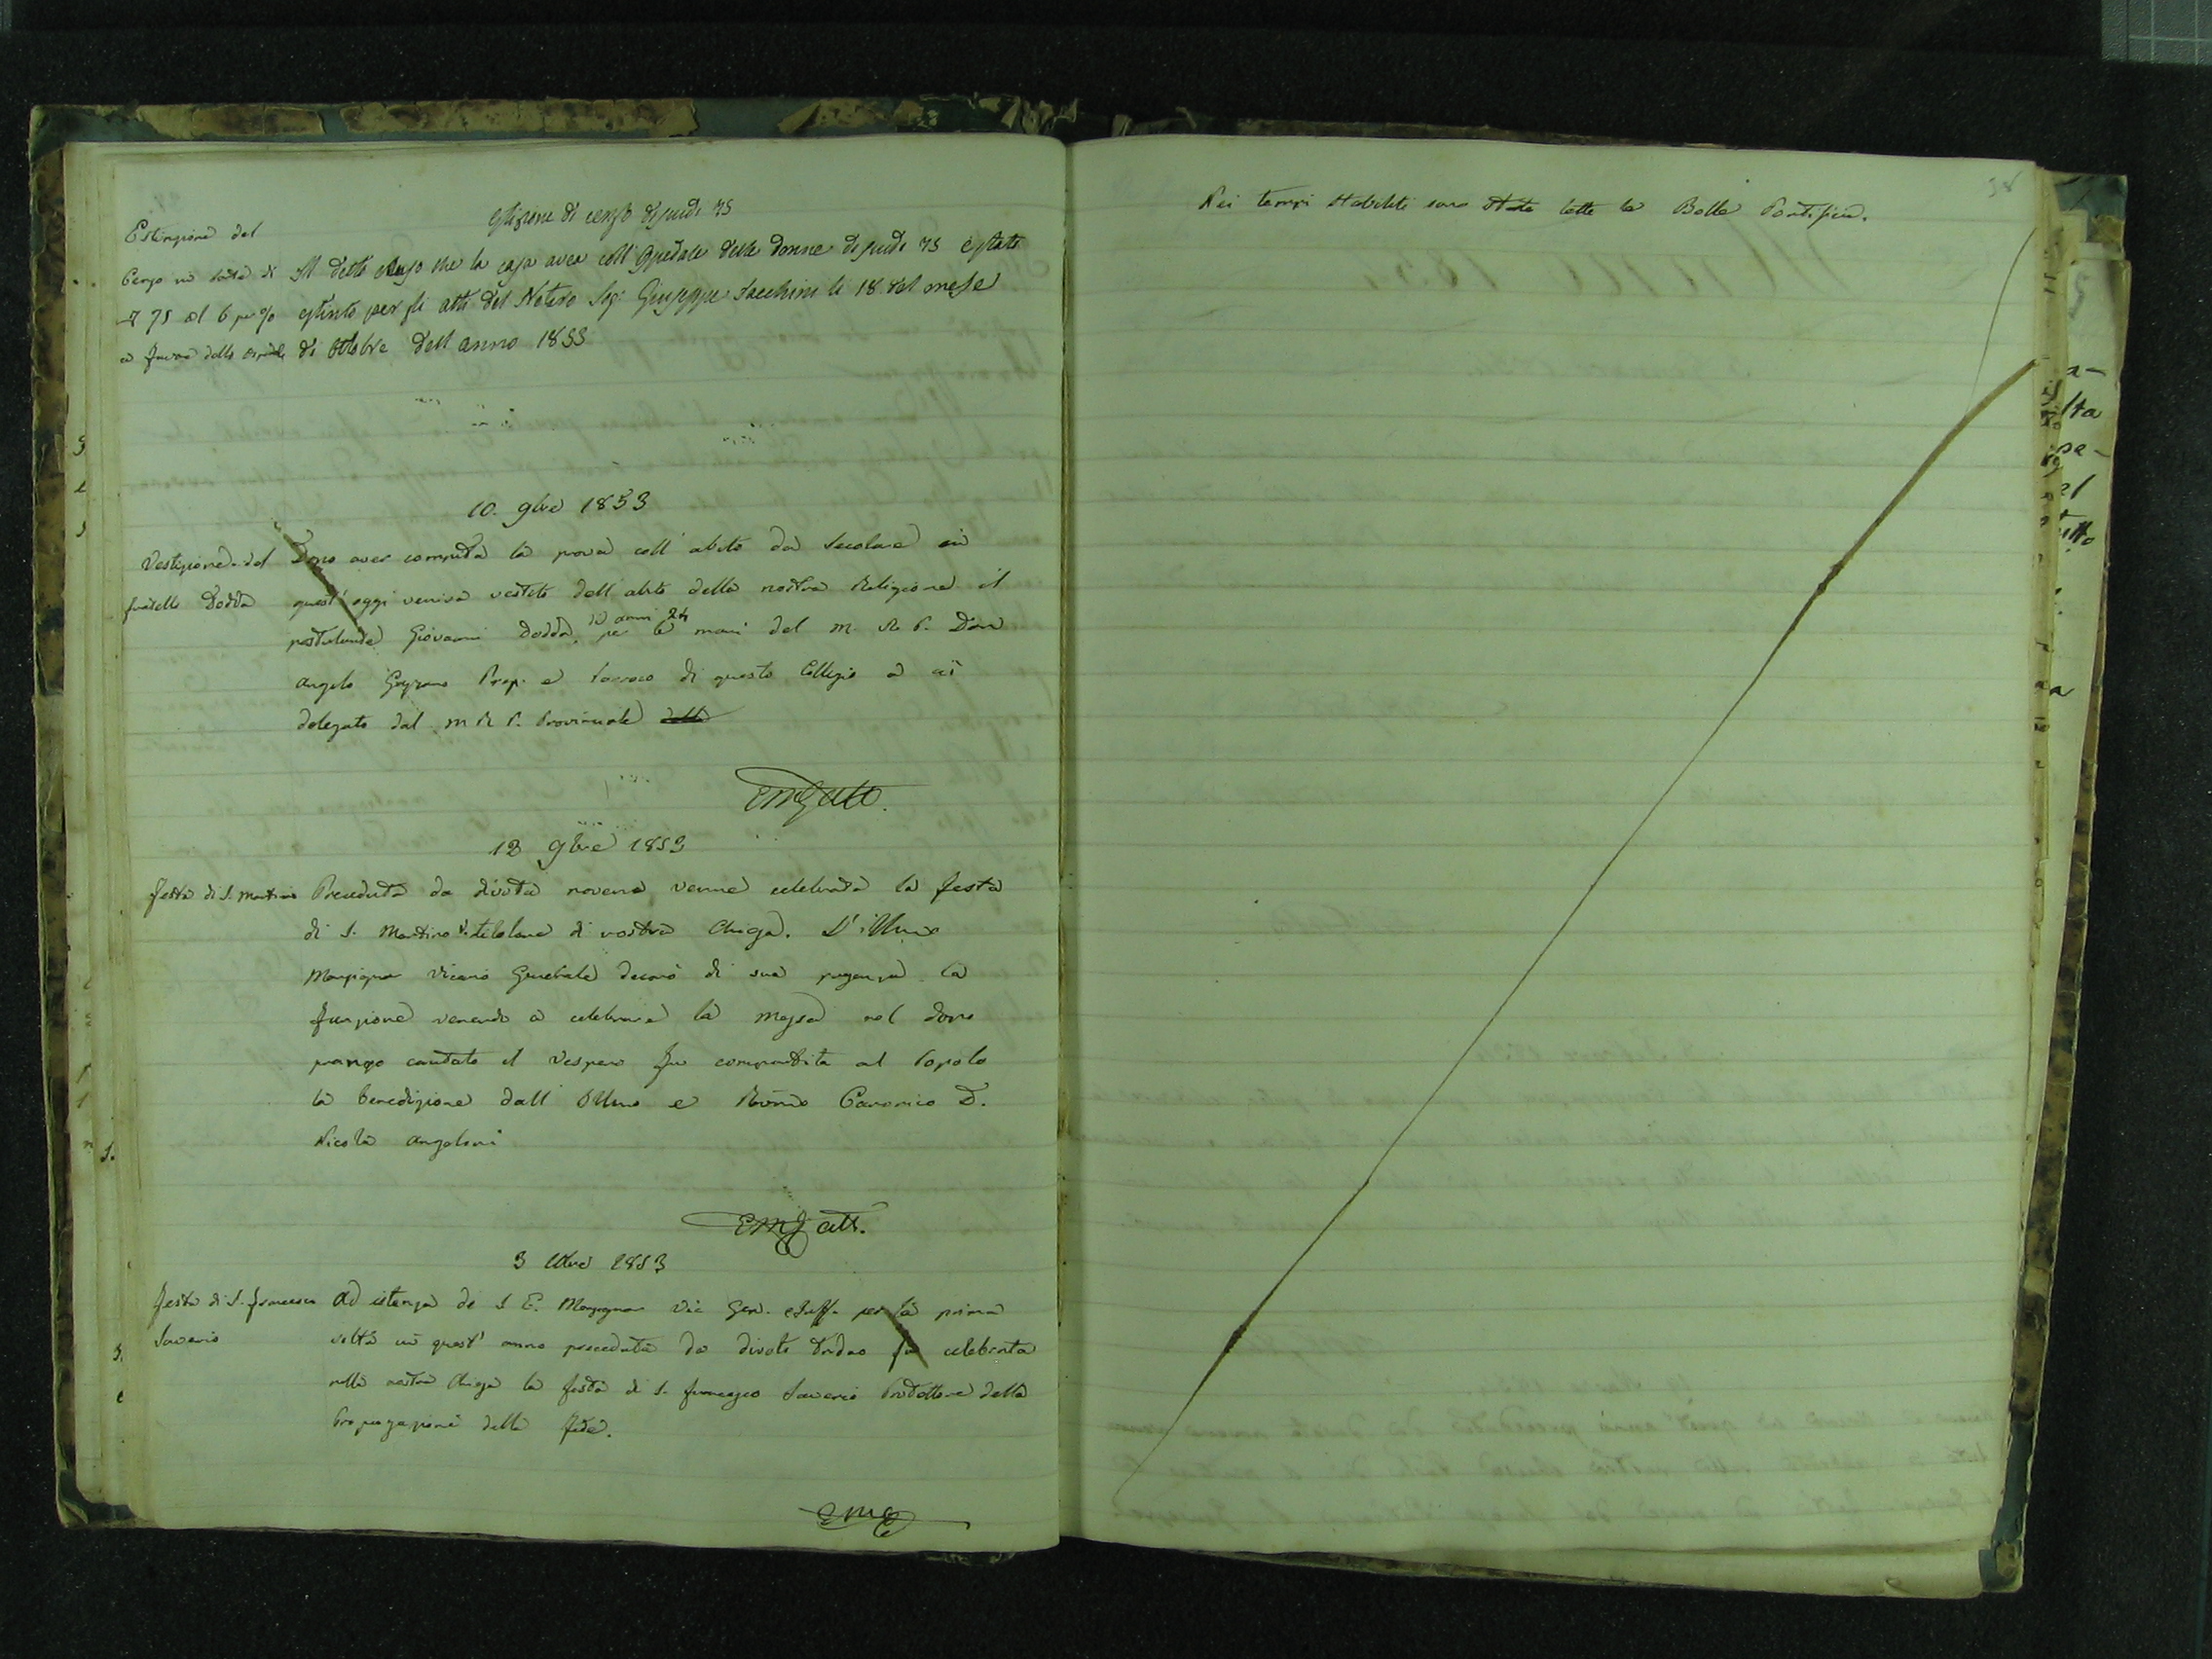 Estinzione di censo di scudi 75
Estinzione del
Censo in sorte di
75 al 6 per %
a favore dello Ospedale
Il detto censo che la casa avea coll'Ospedale delle Donne di scudi 75 è stato
estinto per gli atti del Notaro Sig. Giuseppe Sacchini li 18 del mese
di Ottobre dell'anno 1853
10. 9bre 1853
Vestizione del
fratello Dodda
Dopo aver compita la prova coll'abito da secolare in
quest'oggi veniva vestito dell'abito della nostra Religione il
di anni 24
postulante Giovanni Dodda, per le mani del M. R. P. Don
Angelo Prep. e Parroco di questo Collegio a ciò
delegato dal M R P. Provinciale della
12 9bre 1853
festa di S. Martino
Preceduta da divota novena venne celebrata la festa
di S. Martino V. titolare di nostra Chiesa. L'illmo
Monsignor Vicario Generale decorò di sua presenza la
funzione venendo a celebrare la Messa nel dopo
pranzo cantato il Vespero fu compartita al Popolo
la benedizione dall'Illmo e Rvmo Canonico D.
Nicola Angeloni
3 Xbre 1853
festa di S. Francesco
Saverio
Ad istanza di S E. Monsignor Vic Gen. e Suff. per la prima
volta in quest'anno preceduta da divoto triduo fu celebrata
nella nostra Chiesa la festa di S. Francesco Saverio Protettore della
Propagazione della fede.
EMG
38
Nei tempi stabiliti sono state lette le Bolle Pontificie.